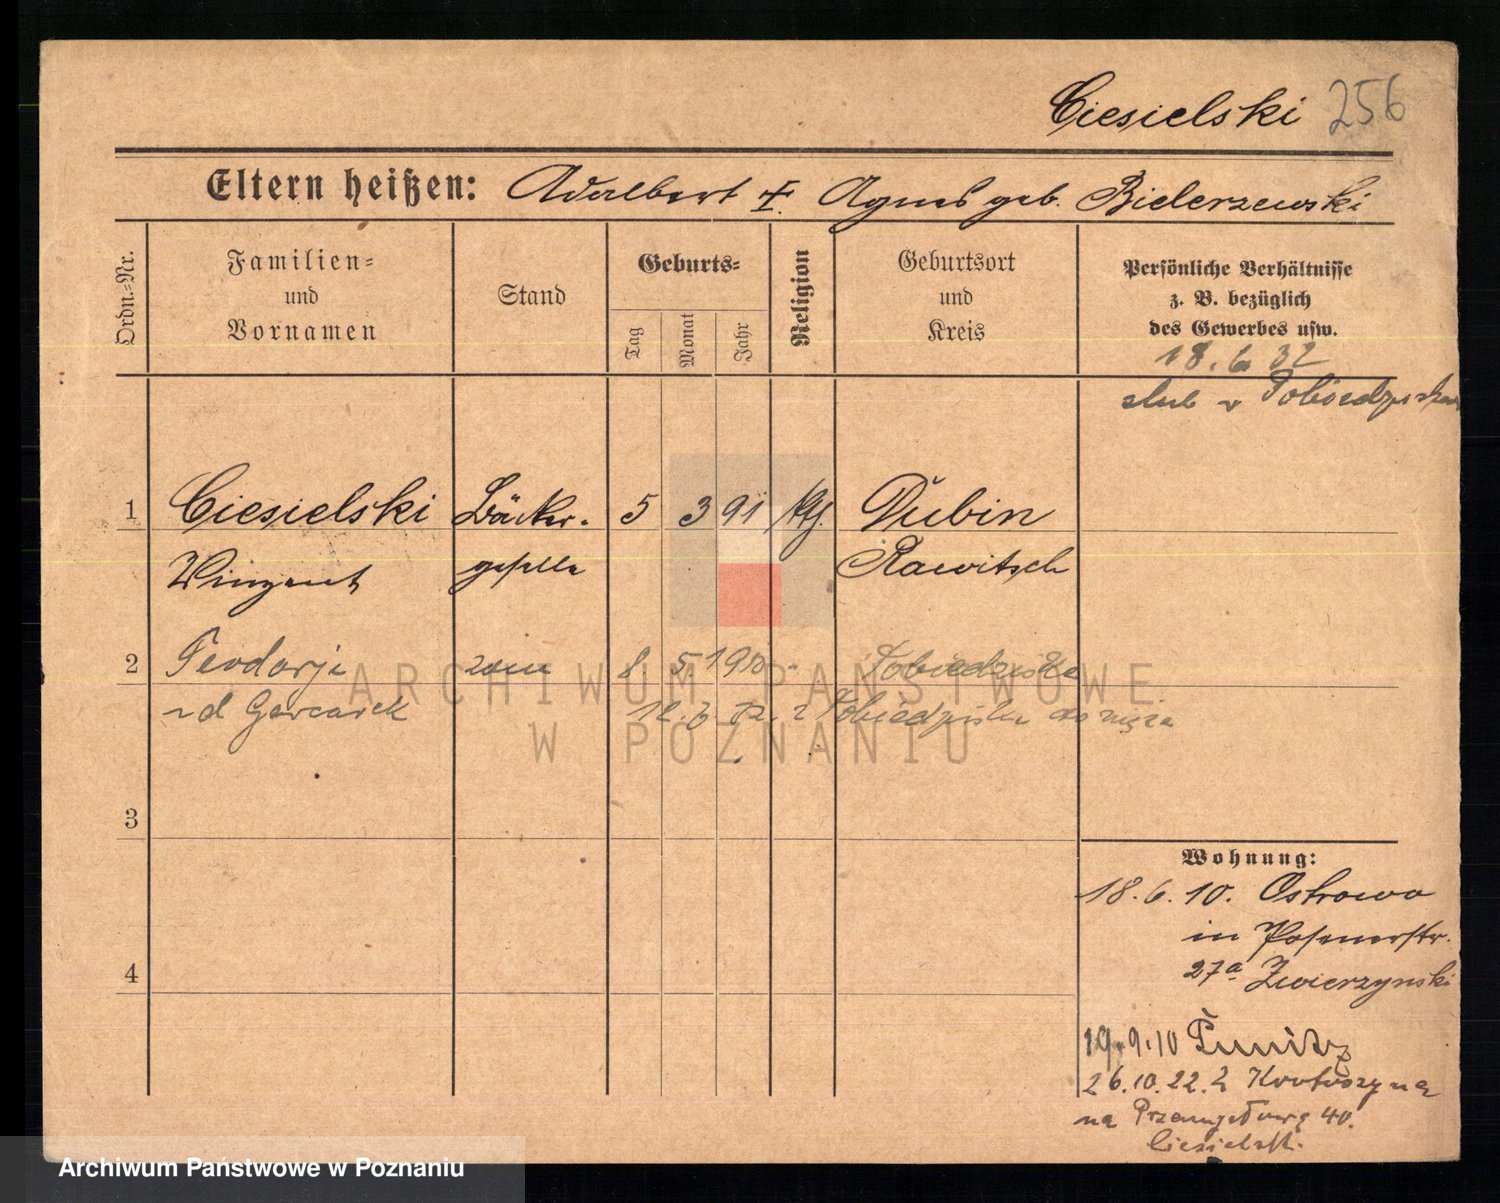 Ciesielski 256
Eltern heißen: Adalbert †. Agnes geb. Bielerzewski
Ordn.=Nr.
Familien=
und
Vornamen
Stand
Geburts=
Tag
Monat
Jahr
Religion
Geburtsort
und
Kreis
Persönliche Verhältnisse
z. B. bezüglich
des Gewerbes usw.
18. 6 32
ślub w Pobiedziskach
1 Ciesielski Bäcker- 5 3 91 kth. Dubin
Winzent geselle Rawitsch
2 Teodorja żona 8. 5. Pobiedziska
z d Garcarek
12. z Pobiedzisk do męża
3
4
Wohnung:
18. 6. 10. Ostrowo
in Posenerstr.
27a Zwierzynski
19. 9. 10 Punitz
26. 10. 22. z Krotoszyna
na Przemysłową 40.
Ciesielsk.
ARCHIWUM PAŃSTWOWE
W POZNANIU
Archiwum Państwowe w Poznaniu